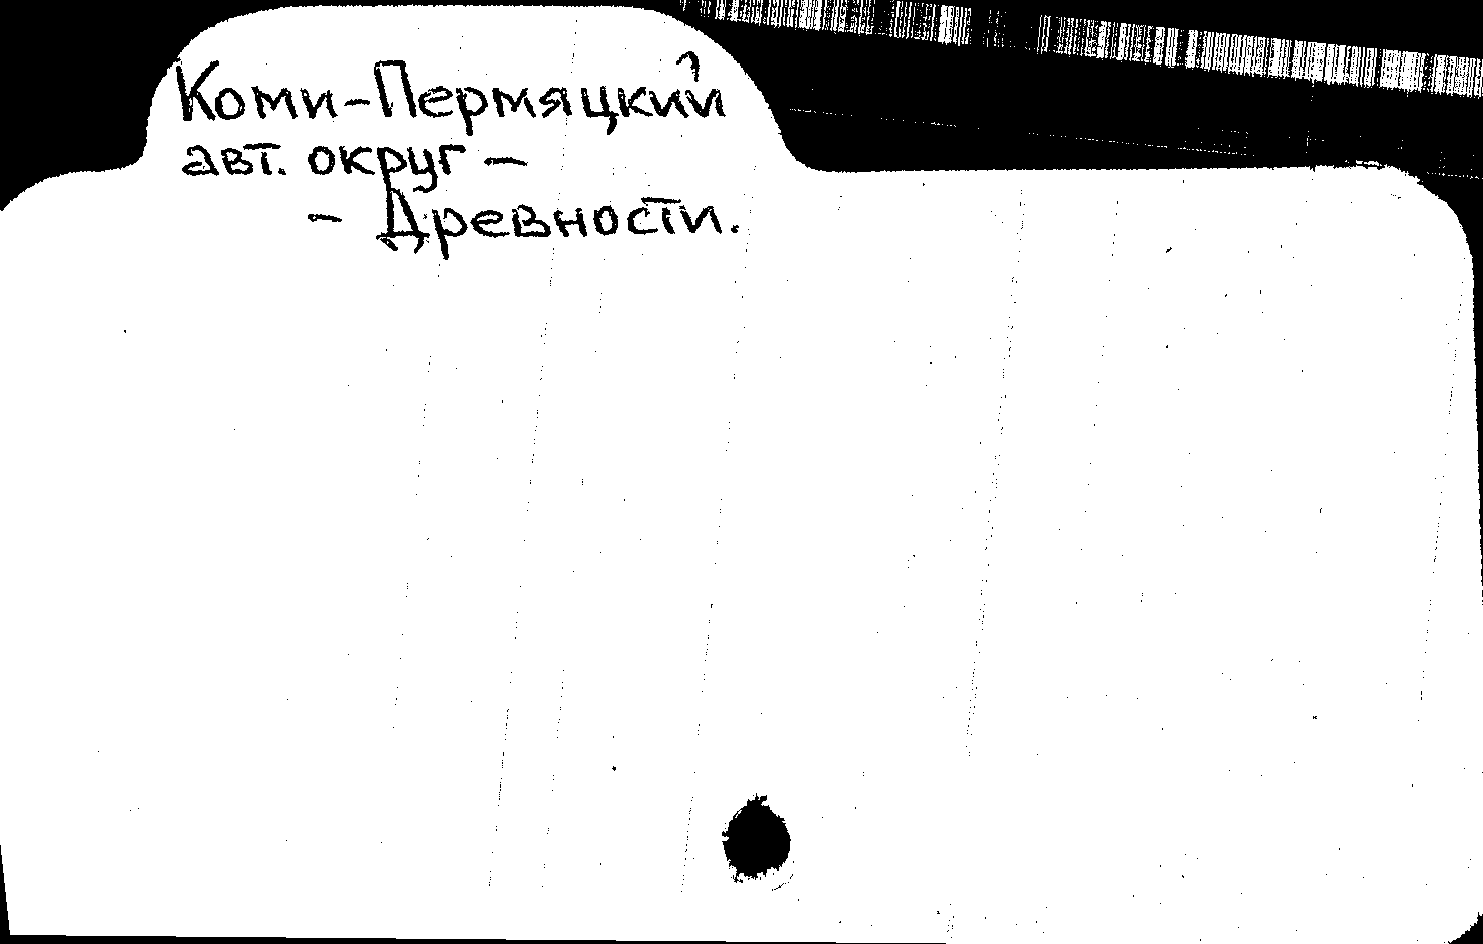 Коми-Пермяцкий
авт. округ –
– Древности.